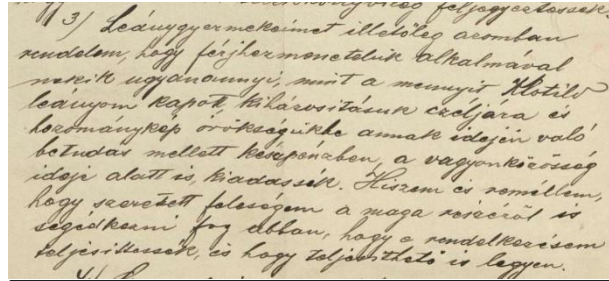 feljegyeztessék
3) Leánygyermekeimet illetőleg azomban
rendelem, hogy férjhermenetelük alkalmával
nekik ugyanannyi, mint a mennyit Klotild
leányom kapott kiházositásuk czéljára és
hozománykép örökségükbe annak idején való
betudás mellett készpénzben, a vagyonközösség
ideje alatt is, kiadassék. Hiszem és remélem,
hogy szeretett feleségem a maga részéről is
segédkezni fog abban, hogy e rendelkezésem
teljesittessék, és hogy teljesithető is legyen.